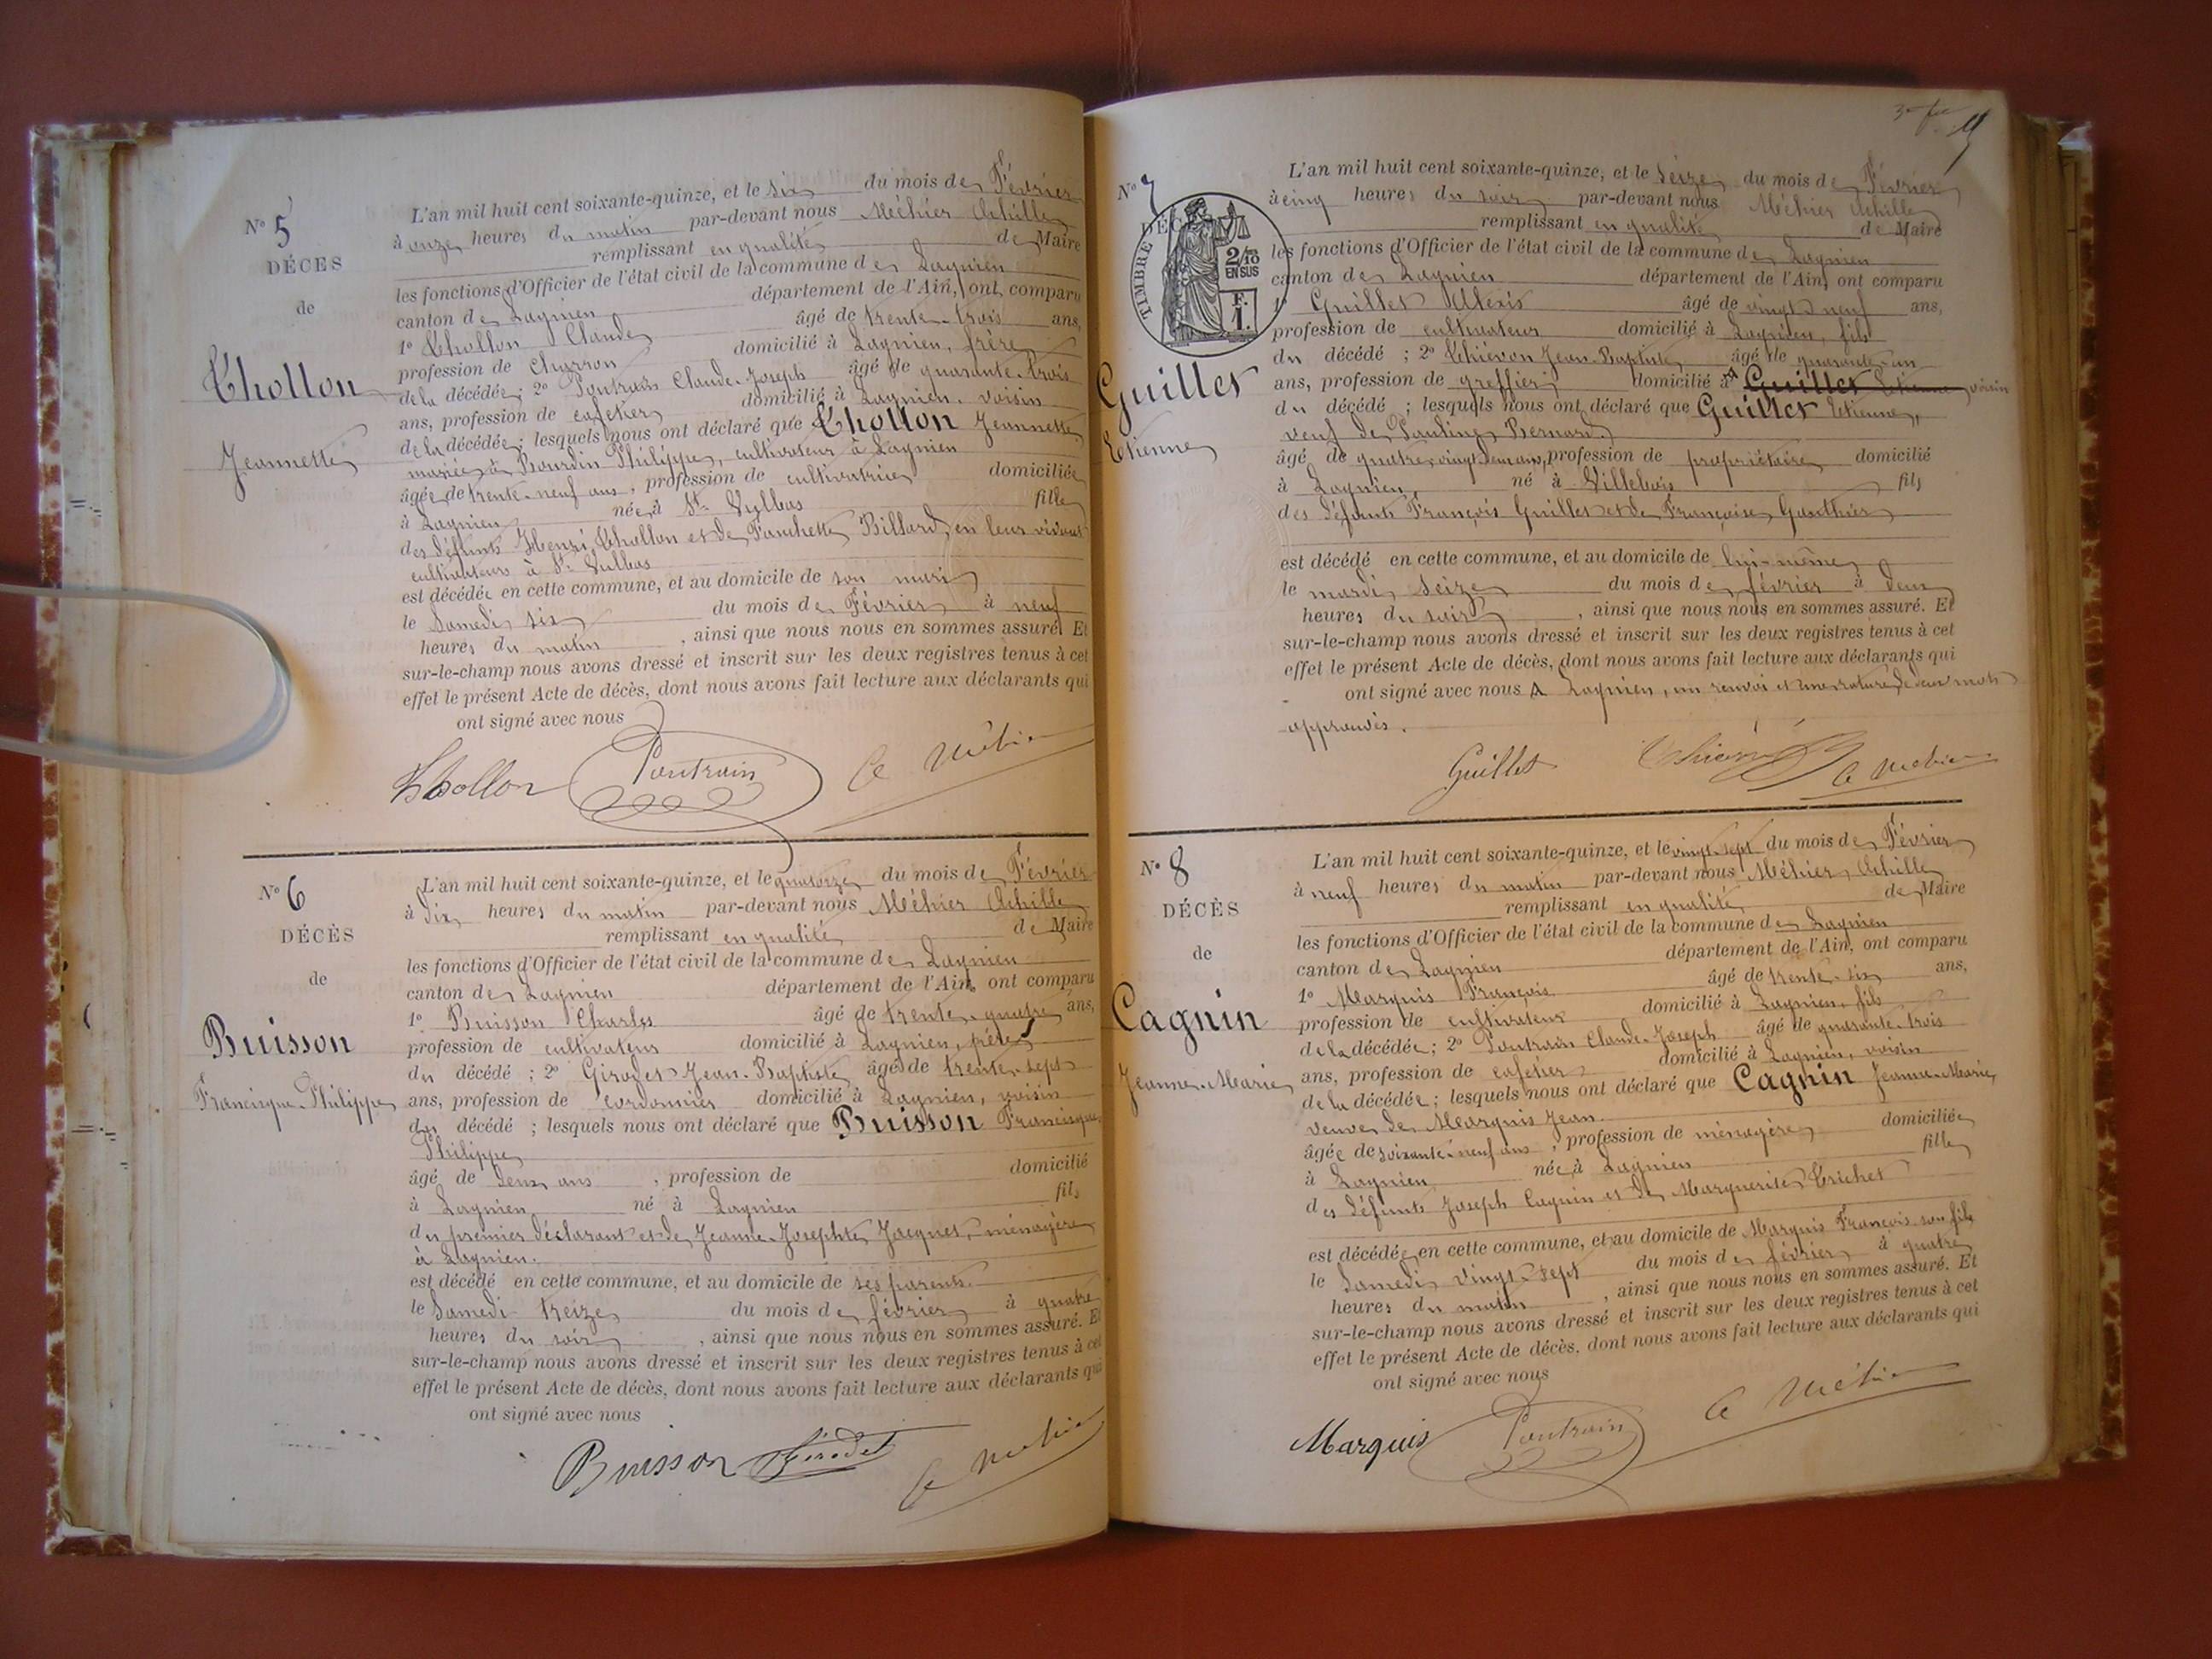 No 5
DÉCES
de
Chollon
Jeannette
L'an mil huit cent soixante-quinze, et le six du mois de Février
à onze heures du matin par-devant nous Méhier Achille
remplissant en qualité de Maire
les fonctions d'Officier de l'état civil de la commune de Lagnieu
canton de Lagnieu département de l'Ain, ont comparu
1o Chollon Claude âgé de trente-trois ans,
profession de Charron domicilié à Lagnieu, frère
de la décédée; 2o Poutrain Claude-Joseph âgé de quarante-trois
ans, profession de cafetier domicilié à Lagnieu, voisin
de la décédée; lesquels nous ont déclaré que Chollon Jeannette
mariée à Bourdin Philippe, cultivateur à Lagnieu
âgée de trente-neuf ans, profession de cultivatrice domiciliée
à Lagnieu née à St Vulbas fille
des défunts Henri Chollon et de Fanchette Billard, en leur vivant
cultivateurs à St Vulbas
est décédée en cette commune, et au domicile de son mari
le Samedi six du mois de Février à neuf
heures du matin, ainsi que nous nous en sommes assuré. Et
sur-le-champ nous avons dressé et inscrit sur les deux registres tenus à cet
effet le présent Acte de décès, dont nous avons fait lecture aux déclarants qui
ont signé avec nous
Chollon Poutrain A Méhier
No 6
DÉCÈS
de
Buisson
Francisque-Philippe
L'an mil huit cent soixante-quinze, et le quatorze du mois de Février
à dix heures du matin par-devant nous Méhier Achille
remplissant en qualité de Maire
les fonctions d'Officier de l'état civil de la commune de Lagnieu
canton de Lagnieu département de l'Ain, ont comparu
1o Buisson Charles âgé de trente-quatre ans,
profession de cultivateur domicilié à Lagnieu, père
du décédé; 2o Girodet Jean-Baptiste âgé de trente-sept
ans, profession de cordonnier domicilié à Lagnieu, voisin
du décédé; lesquels nous ont déclaré que Buisson Francisque
Philippe
âgé de deux ans, profession de domicilié
à Lagnieu né à Lagnieu fils
du premier déclarant et de Jeanne-Josephte Jacquet, ménagère
à Lagnieu.
est décédé en cette commune, et au domicile de ses parents.
le Samedi treize du mois de février à quatre
heures du soir, ainsi que nous nous en sommes assuré. Et
sur-le-champ nous avons dressé et inscrit sur les deux registres tenus à cet
effet le présent Acte de décès, dont nous avons fait lecture aux déclarants qui
ont signé avec nous
Buisson Girodet A Méhier
No 7
DÉC
TIMBRE
2/10
EN SUS
F.
1.
Guillet
Etienne
L'an mil huit cent soixante-quinze, et le seize du mois de Février
à cinq heures du soir par-devant nous Méhier Achille
remplissant en qualité de Maire
les fonctions d'Officier de l'état civil de la commune de Lagnieu
canton de Lagnieu département de l'Ain, ont comparu
1o Guillet Alexis âgé de vingt-neuf ans,
profession de cultivateur domicilié à Lagnieu, fils
du décédé; 2o Thiévon Jean-Baptiste âgé de quarante-un
ans, profession de greffier domicilié à Guillet Etienne, voisin
du décédé; lesquels nous ont déclaré que Guillet Etienne,
veuf de Pauline Bernard
âgé de quatre-vingt-deux ans, profession de propriétaire domicilié
à Lagnieu, né à Villebois fils
des défunts François Guillet et de Françoise Gauthier
est décédé en cette commune, et au domicile de lui-même
le mardi seize du mois de février à deux
heures du soir, ainsi que nous nous en sommes assuré. Et
sur-le-champ nous avons dressé et inscrit sur les deux registres tenus à cet
effet le présent Acte de décès, dont nous avons fait lecture aux déclarants qui
ont signé avec nous Lagnieu, un renvoi et une rature de deux mots
approuvés.
Guillet Thiévon A Méhier
No 8
DÉCÈS
de
Cagnin
Jeanne-Marie
L'an mil huit cent soixante-quinze, et le vingt-sept du mois de Février
à neuf heures du matin par-devant nous Méhier, Achille
remplissant en qualité de Maire
les fonctions d'Officier de l'état civil de la commune de Lagnieu
canton de Lagnieu département de l'Ain, ont comparu
1o Marquis François âgé de trente-six ans,
profession de cultivateur domicilié à Lagnieu, fils
de la décédée; 2o Poutrain Claude-Joseph âgé de quarante-trois
ans, profession de cafetier domicilié à Lagnieu, voisin
de la décédée; lesquels nous ont déclaré que Cagnin Jeanne-Marie,
veuve de Marquis Jean.
âgée de soixante-neuf ans, profession de ménagère domiciliée
à Lagnieu née à Lagnieu fille
des défunts Joseph Cagnin et de Marguerite Trichet
est décédée en cette commune, et au domicile de Marquis François son fils
le Samedi vingt-sept du mois de février à quatre
heures du matin, ainsi que nous nous en sommes assuré. Et
sur-le-champ nous avons dressé et inscrit sur les deux registres tenus à cet
effet le présent Acte de décès, dont nous avons fait lecture aux déclarants qui
ont signé avec nous
Marquis Poutrain A Méhier